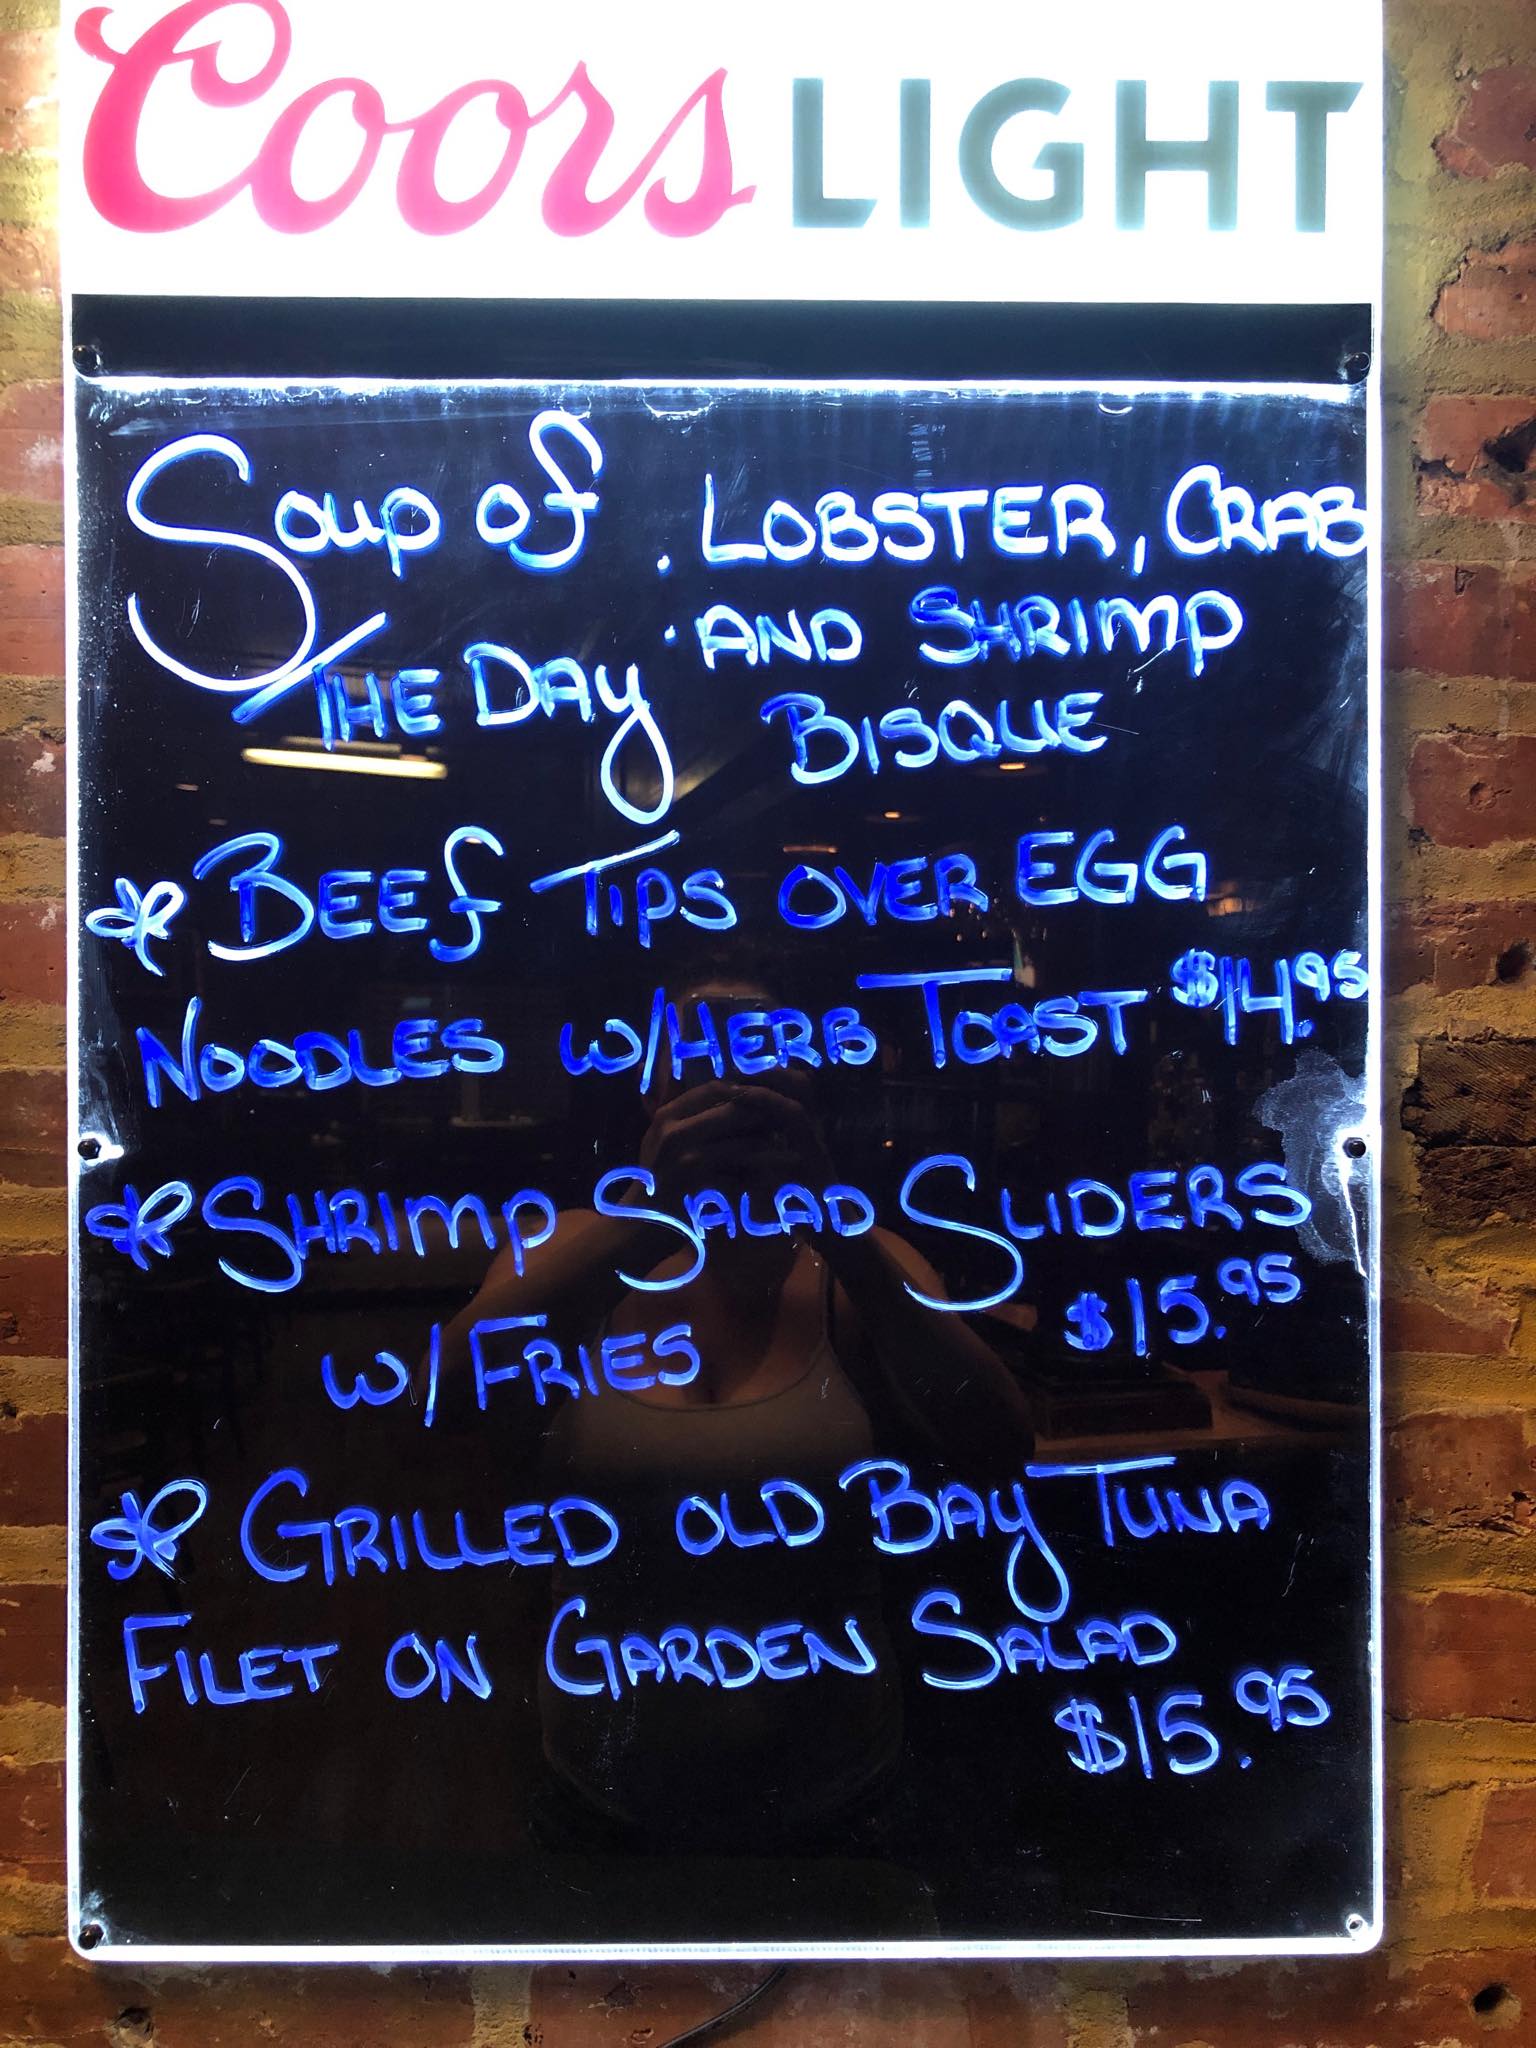 Coors LIGHT
Soup of : LOBSTER, CRAB
THE DAY AND SHRIMP
BISQUE
BEEf TIPS OVER EGG
NOODLES W/HERB TOAST $14.95
SHRIMP SALAD SLIDERS
W/FRIES $15.95
GRILLED OLD BAY TUNA
FILET ON GARDEN SALAD
$15.95